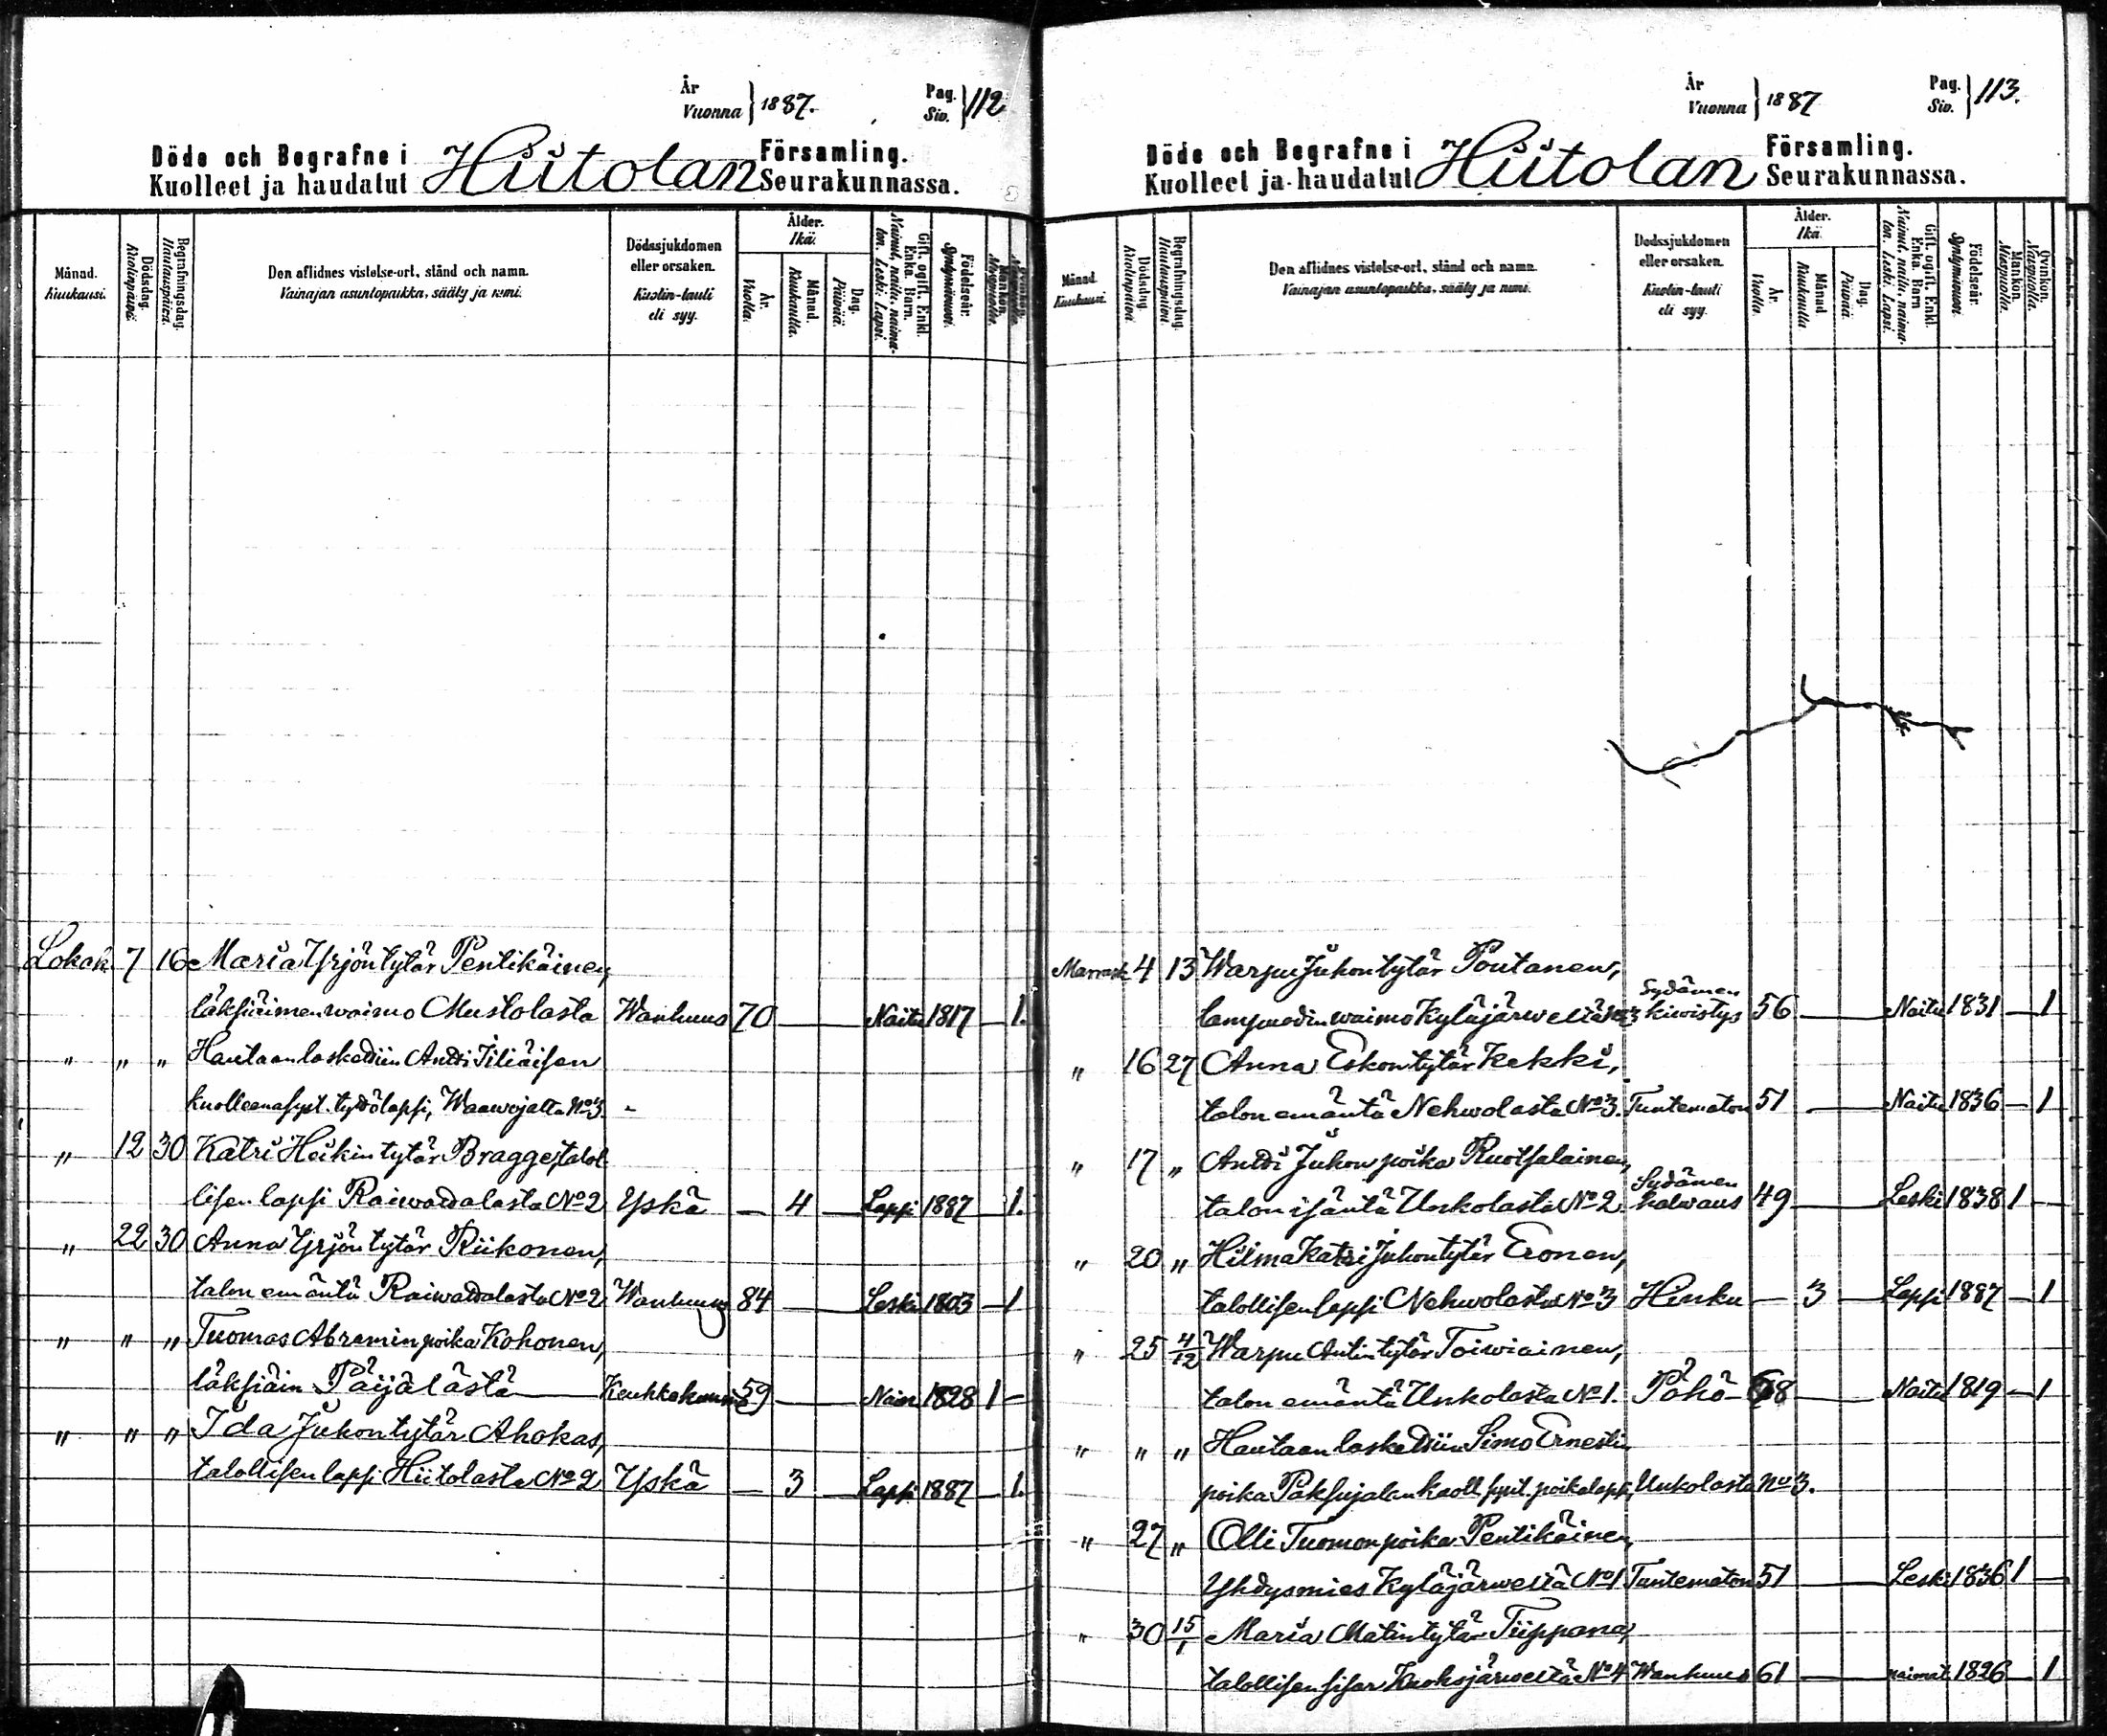 År
Vuonna } 1887.
Pag.
Siv. } 112
Döde och Begrafne i Hiitolan Församling.
Kuolleet ja haudatut Seurakunnassa.
Månad. Kuukausi.
Dödsdag. Kuolinpäivä.
Begrafningsdag. Hautauspäivä.
Den aflidnes vistelse-ort, stånd och namn.
Vainajan asuntopaikka, sääty ja nimi.
Dödssjukdomen eller orsaken.
Kuolin-tauti eli syy.
Ålder. Ikä.
År. Vuotta.
Månad. Kuukautta.
Dag. Päivää.
Gift, ogift, Enkl. Enka. Barn
Nainut, naitu, naima-
ton. Leski. Lapsi.
Födelseår. Syntymävuosi.
Mankön. Miespuolia.
Qvinkön. Vaimpuolia.
Lokak. 7 16 Maria Yrjöntytär Pentikäinen,
läksiäimen waimo Mustolasta Wanhuus 70 — Naitu 1817 — 1.
" " " Hautaan laskettiin Antti Iiliäisen
kuolleena synt. tyttölapsi, Waawojalta No 3. -
" 12 30 Katri Heikintytär Bragge, talol
lisen lapsi Raiwattalasta No 2 Yskä — 4 — Lapsi 1887 — 1.
" 22 30 Anna Yrjöntytär Riikonen,
talon emäntä Raiwattalasta No 2 Wanhuus 84 — Leski 1803 — 1
" " " Tuomas Abraminpoika Kohonen,
läksiäin Päijälästä — Keuhkokuume 59 — Nain. 1828 1 —
" " " Ida Juhontytär Ahokas,
talollisen lapsi Hiitolasta No 2 Yskä — 3 — Lapsi 1887 — 1.
År
Vuonna } 1887
Pag.
Siv. } 113.
Döde och Begrafne i Hiitolan Församling.
Kuolleet ja haudatut Seurakunnassa.
Månad. Kuukausi.
Dödsdag. Kuolinpäivä.
Begrafningsdag. Hautauspäivä.
Den aflidnes vistelse-ort, stånd och namn.
Vainajan asuntopaikka, sääty ja nimi.
Dödssjukdomen eller orsaken.
Kuolin-tauti eli syy.
Ålder. Ikä.
År. Vuotta.
Månad. Kuukautta
Dag. Päivää.
Gift, ogift, Enkl. Enka. Barn
Nainut, naitu, naima-
ton. Leski. Lapsi.
Födelseår. Syntymävuosi.
Mankön. Miespuolia.
Qvinkön. Vaimpuolia.
Marrask. 4 13 Warpu Juhontytär Poutanen,
lampuodin waimo Kyläjärweltä No 3 Sydämen kiwistys 56 — Naitu 1831 — 1
" 16 27 Anna Eskontytär Kekki,
talon emäntä Nehwolasta No 3. Tuntematon 51 — Naitu 1836 — 1
" 17 " Antti Juhonpoika Ruotsalainen,
talon isäntä Unkolasta No 2 Sydämen halwaus 49 — Leski 1838 1 —
" 20 " Hilma Katri Juhontytär Eronen,
talollisen lapsi Nehwolasta No 3 Hinku — 3 — Lapsi 1887 — 1
" 25 4/12 Warpu Antintytär Toiwiainen,
talon emäntä Unkolasta No 1. Pöhö 68 — Naitu 1819 — 1
" " " Hautaan laskettiin Simo Ernestin
poika Paksujalan kuoll. synt. poikalapsi, Unkolasta No 3.
" 27 " Olli Tuomonpoika Pentikäinen,
Yhdysmies Kyläjärweltä No 1 Tuntematon 51 — Leski 1836 1 —
" 30 15/1 Maria Matintytär Tiippana,
talollisen sisar Kuoksjärweltä No 4 Wanhuus 61 — naimat. 1826 — 1